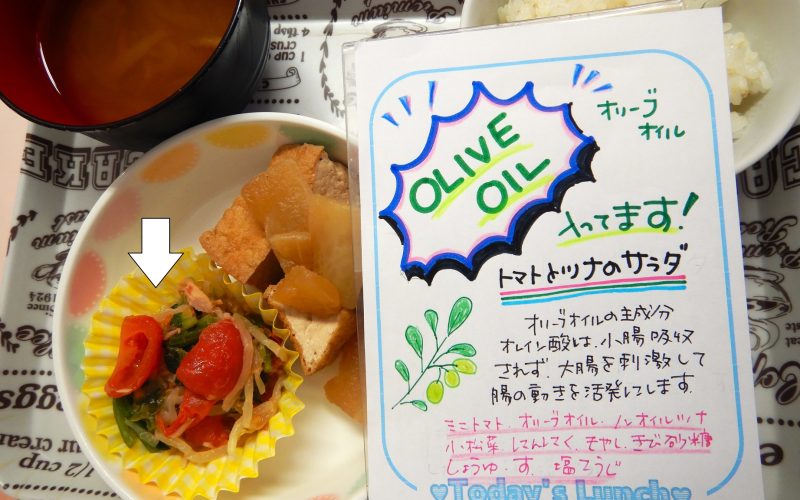 OLIVE
OIL
オリーブ
オイル
入ってます!
トマトとツナのサラダ
オリーブオイルの主成分
オレイン酸は、小腸吸収
されず、大腸を刺激して
腸の動きを活発にします。
ミニトマト、オリーブオイル、ノンオイルツナ
小松菜 にんにく、もやし、きび砂糖
しょうゆ、す、塩こうじ
♥Today's Lunch♥
Since
1924
1/2 cup
eggs
1 CUP